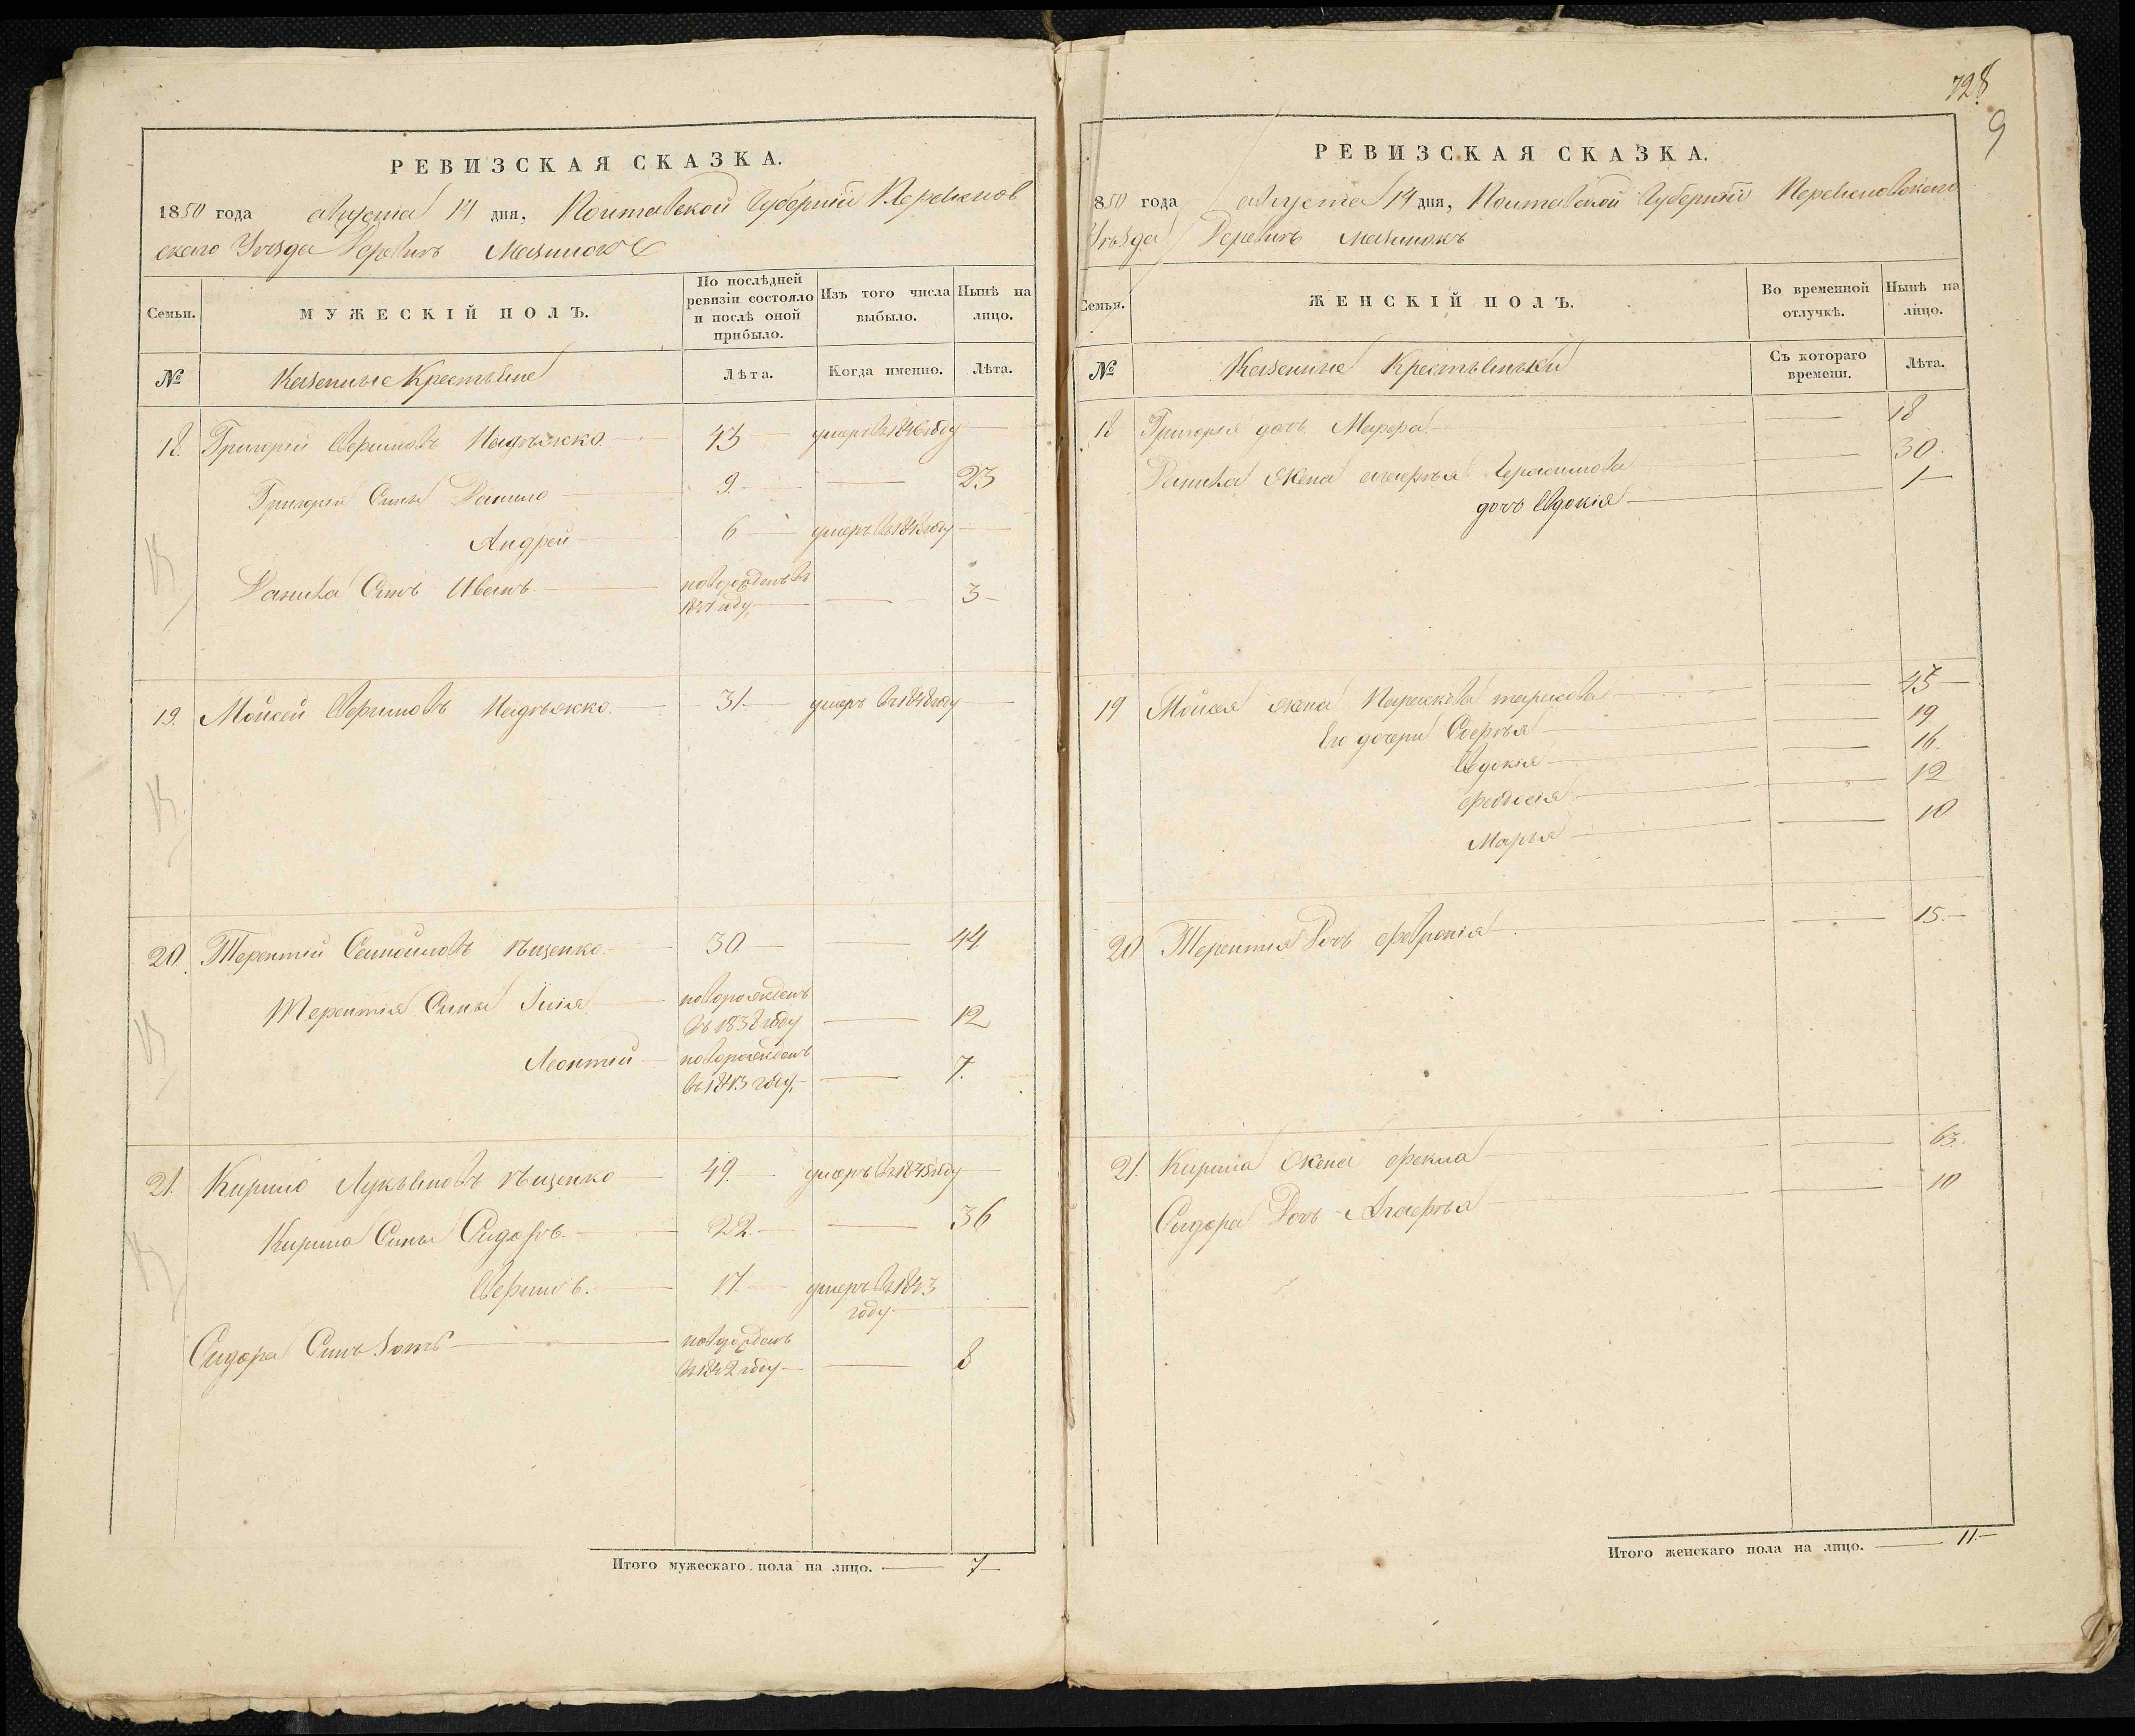 РЕВИЗСКАЯ СКАЗКА.
1850 года августа 14 дня, Полтавской Губерніи Кременчов
скаго Уѣзда Деревнѣ
Семьи.
МУЖЕСКІЙ ПОЛЪ.
По послѣдней ревизіи состояло и послѣ оной прибыло.
Изъ того числа выбыло.
Нынѣ на лицо.
№
Казенные Крестьяне
Лѣта.
Когда именно.
Лѣта.
18. Григорій Ефимовъ 43 умеръ въ 1846 году
Григорія Сины Данило 9. 23
Андрей 6 умеръ въ году
Данила Синъ Иванъ новорожденъ въ
1847 году 3
19. Мойсей Ефимовъ 31. умеръ въ 1848 году
20. Терентій Самойловъ 30 44
Терентія Сины Илія новорожденъ
въ 1838 году 12
Леонтій новорожденъ
въ 1843 году, 7.
21. Кирило Лукьяновъ 49. умеръ въ году
Кирила Сины Сидоръ 22. 36
Ефимъ. 17. умеръ въ 1843
году
Сидора Синъ новорожденъ
въ 1842 году 8
Итого мужескаго пола на лицо. 7
728
9
РЕВИЗСКАЯ СКАЗКА.
1850 года августа 14 дня, Полтавской Губерніи
Уѣзда Деревнѣ
Семьи.
ЖЕНСКІЙ ПОЛЪ.
Во временной отлучкѣ.
Нынѣ на лицо.
№
Казенные Крестьянки
Съ котораго времени.
Лѣта.
18 Григорія дочь Марфа 18
Данила Жена Агафья Герасимова 30.
дочь Евдокія 1
19 Мойсея жена Парасковья тарасова 45
Его дочери Софья 19
Евдокія 16.
Феодосія 12
Марья 10
20 Терентія Дочь Февронія 15.
21. Кирила Жена Фекла 63.
Сидора Дочь Агафья 10
Итого женскаго пола на лицо. 11.